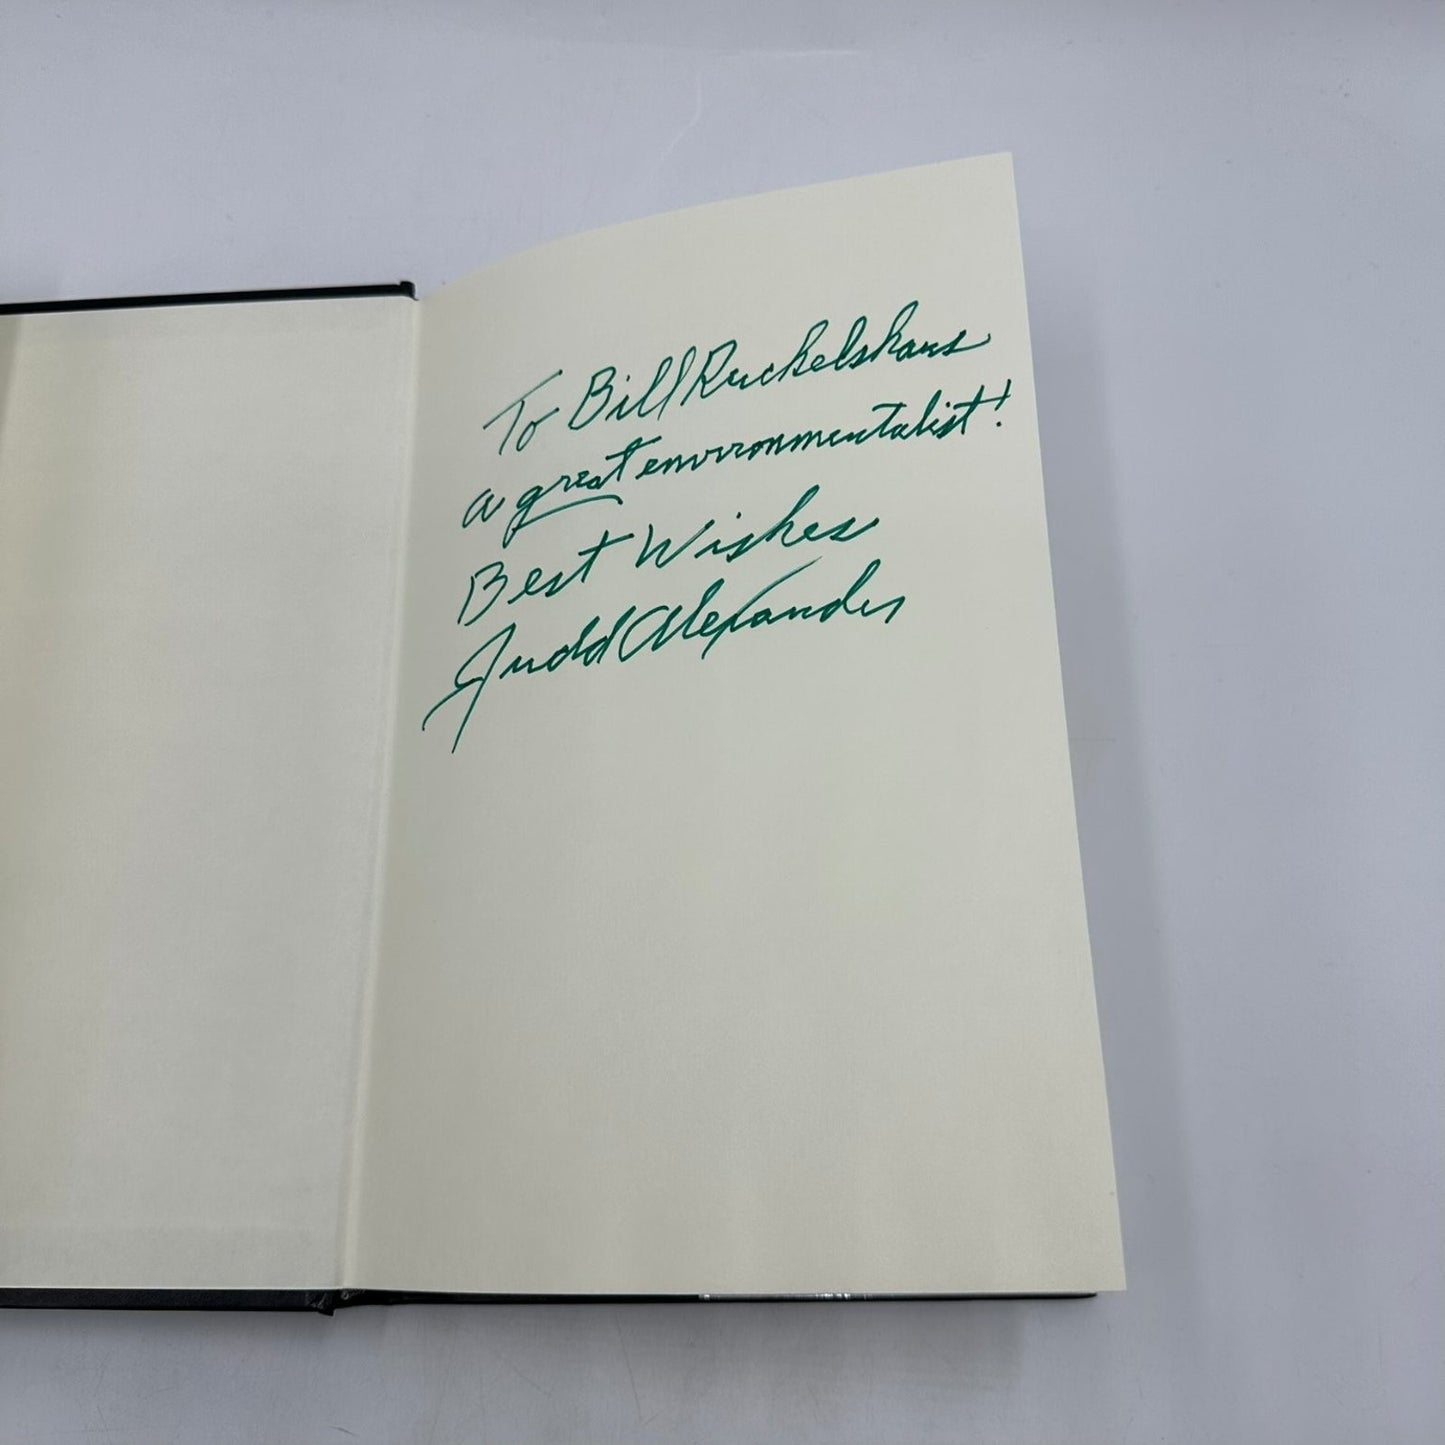 To Bill Ruckelshaus
a great environmentalist!
Best Wishes
Judd Alexander